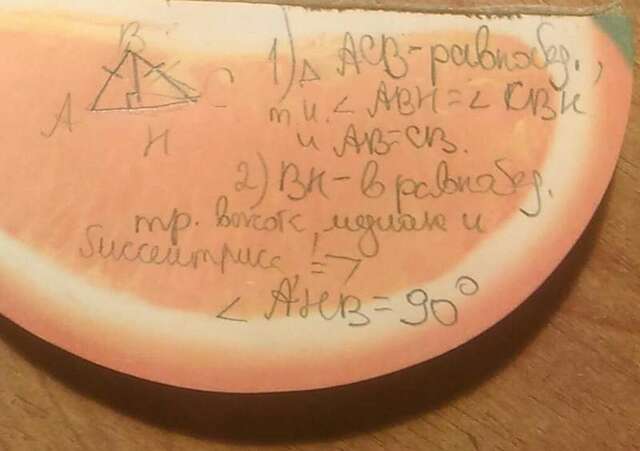 B
A
C
H
1) Δ ACB-равнобед.,
т.к. ∠ ABH = ∠ CBH
и AB=CB.
2) BH-в равнобед.
тр. высот, медиана и
биссектриса, =>
∠ AHB = 90°